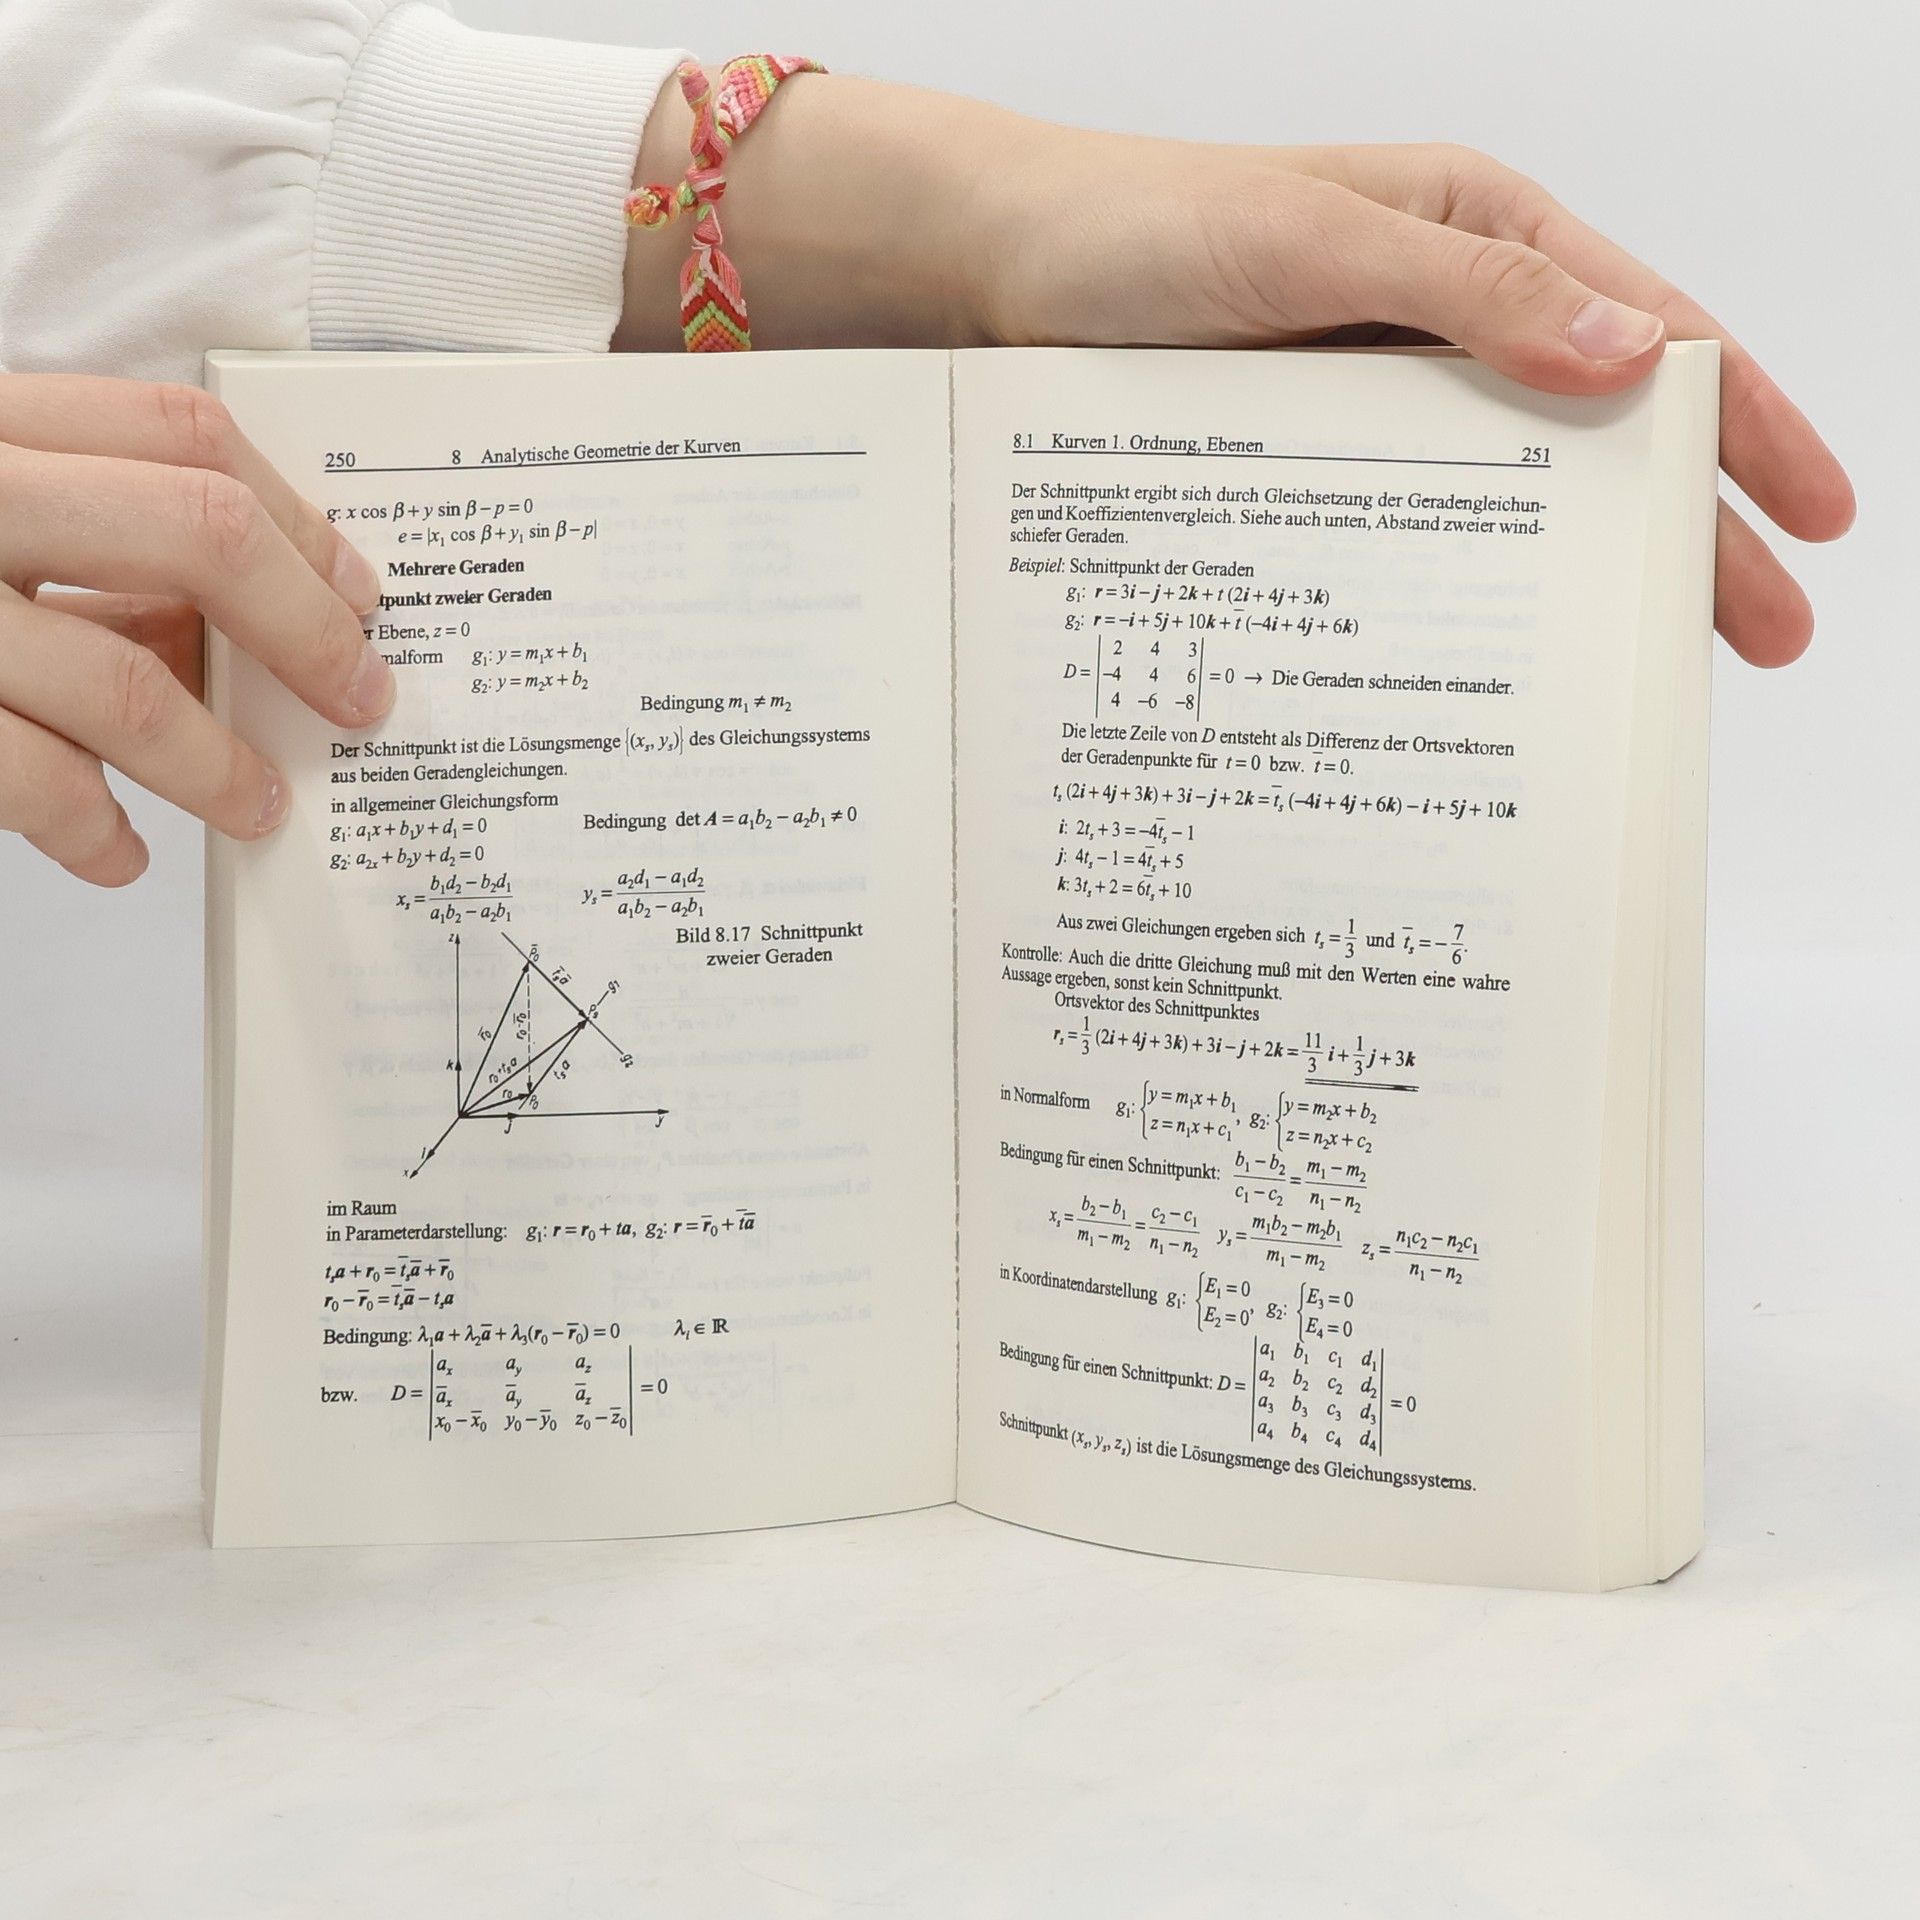 250 8 Analytische Geometrie der Kurven
g: x cos β + y sin β − p = 0
e = |x₁ cos β + y₁ sin β − p|
Mehrere Geraden
tpunkt zweier Geraden
r Ebene, z = 0
malform g₁: y = m₁x + b₁
g₂: y = m₂x + b₂
Bedingung m₁ ≠ m₂
Der Schnittpunkt ist die Lösungsmenge {(xₛ, yₛ)} des Gleichungssystems
aus beiden Geradengleichungen.
in allgemeiner Gleichungsform
g₁: a₁x + b₁y + d₁ = 0 Bedingung det A = a₁b₂ − a₂b₁ ≠ 0
g₂: a₂ₓ + b₂y + d₂ = 0
xₛ = (b₁d₂ − b₂d₁)/(a₁b₂ − a₂b₁) yₛ = (a₂d₁ − a₁d₂)/(a₁b₂ − a₂b₁)
Bild 8.17 Schnittpunkt
zweier Geraden
z
P̄₀
t̄ₛā
g₁
Pₛ
r̄₀
r₀−r̄₀
g₂
k
r₀+tₛa
tₛa
r₀
P₀
j
y
i
x
im Raum
in Parameterdarstellung: g₁: r = r₀ + ta, g₂: r = r̄₀ + t̄ā
tₛa + r₀ = t̄ₛā + r̄₀
r₀ − r̄₀ = t̄ₛā − tₛa
Bedingung: λ₁a + λ₂ā + λ₃(r₀ − r̄₀) = 0 λᵢ ∈ ℝ
aₓ a_y a_z
bzw. D = āₓ ā_y ā_z = 0
x₀ − x̄₀ y₀ − ȳ₀ z₀ − z̄₀
8.1 Kurven 1. Ordnung, Ebenen 251
Der Schnittpunkt ergibt sich durch Gleichsetzung der Geradengleichun-
gen und Koeffizientenvergleich. Siehe auch unten, Abstand zweier wind-
schiefer Geraden.
Beispiel: Schnittpunkt der Geraden
g₁: r = 3i − j + 2k + t (2i + 4j + 3k)
g₂: r = −i + 5j + 10k + t̄ (−4i + 4j + 6k)
2 4 3
D = −4 4 6 = 0 → Die Geraden schneiden einander.
4 −6 −8
Die letzte Zeile von D entsteht als Differenz der Ortsvektoren
der Geradenpunkte für t = 0 bzw. t̄ = 0.
tₛ (2i + 4j + 3k) + 3i − j + 2k = t̄ₛ (−4i + 4j + 6k) − i + 5j + 10k
i: 2tₛ + 3 = −4t̄ₛ − 1
j: 4tₛ − 1 = 4t̄ₛ + 5
k: 3tₛ + 2 = 6t̄ₛ + 10
Aus zwei Gleichungen ergeben sich tₛ = 1/3 und t̄ₛ = −7/6.
Kontrolle: Auch die dritte Gleichung muß mit den Werten eine wahre
Aussage ergeben, sonst kein Schnittpunkt.
Ortsvektor des Schnittpunktes
rₛ = 1/3 (2i + 4j + 3k) + 3i − j + 2k = 11/3 i + 1/3 j + 3k
in Normalform g₁: {y = m₁x + b₁, g₂: {y = m₂x + b₂
z = n₁x + c₁ z = n₂x + c₂
Bedingung für einen Schnittpunkt: (b₁ − b₂)/(c₁ − c₂) = (m₁ − m₂)/(n₁ − n₂)
xₛ = (b₂ − b₁)/(m₁ − m₂) = (c₂ − c₁)/(n₁ − n₂) yₛ = (m₁b₂ − m₂b₁)/(m₁ − m₂) zₛ = (n₁c₂ − n₂c₁)/(n₁ − n₂)
in Koordinatendarstellung g₁: {E₁ = 0, g₂: {E₃ = 0
E₂ = 0 E₄ = 0
a₁ b₁ c₁ d₁
Bedingung für einen Schnittpunkt: D = a₂ b₂ c₂ d₂ = 0
a₃ b₃ c₃ d₃
a₄ b₄ c₄ d₄
Schnittpunkt (xₛ, yₛ, zₛ) ist die Lösungsmenge des Gleichungssystems.